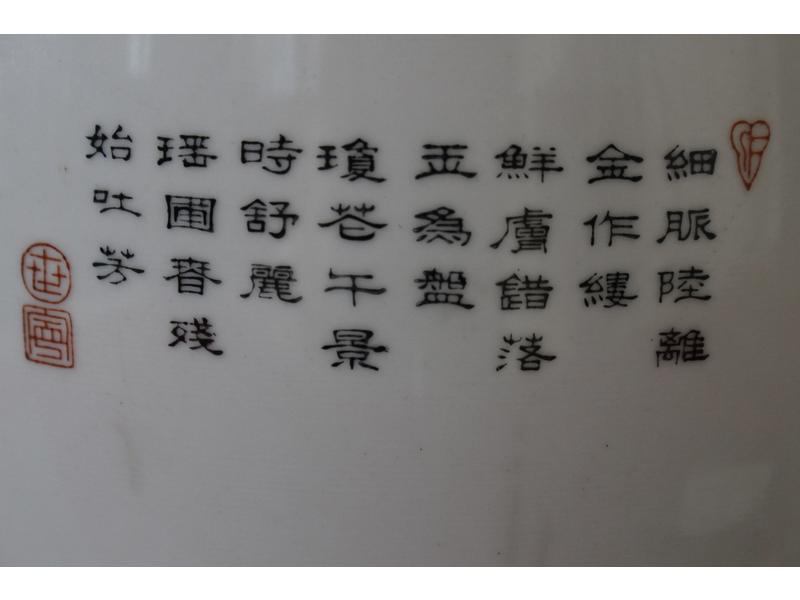 細脈陸離
金作縷
鮮膚錯落
玉為盤
瓊苍午景
時舒麗
瑶圃春殘
始吐芳